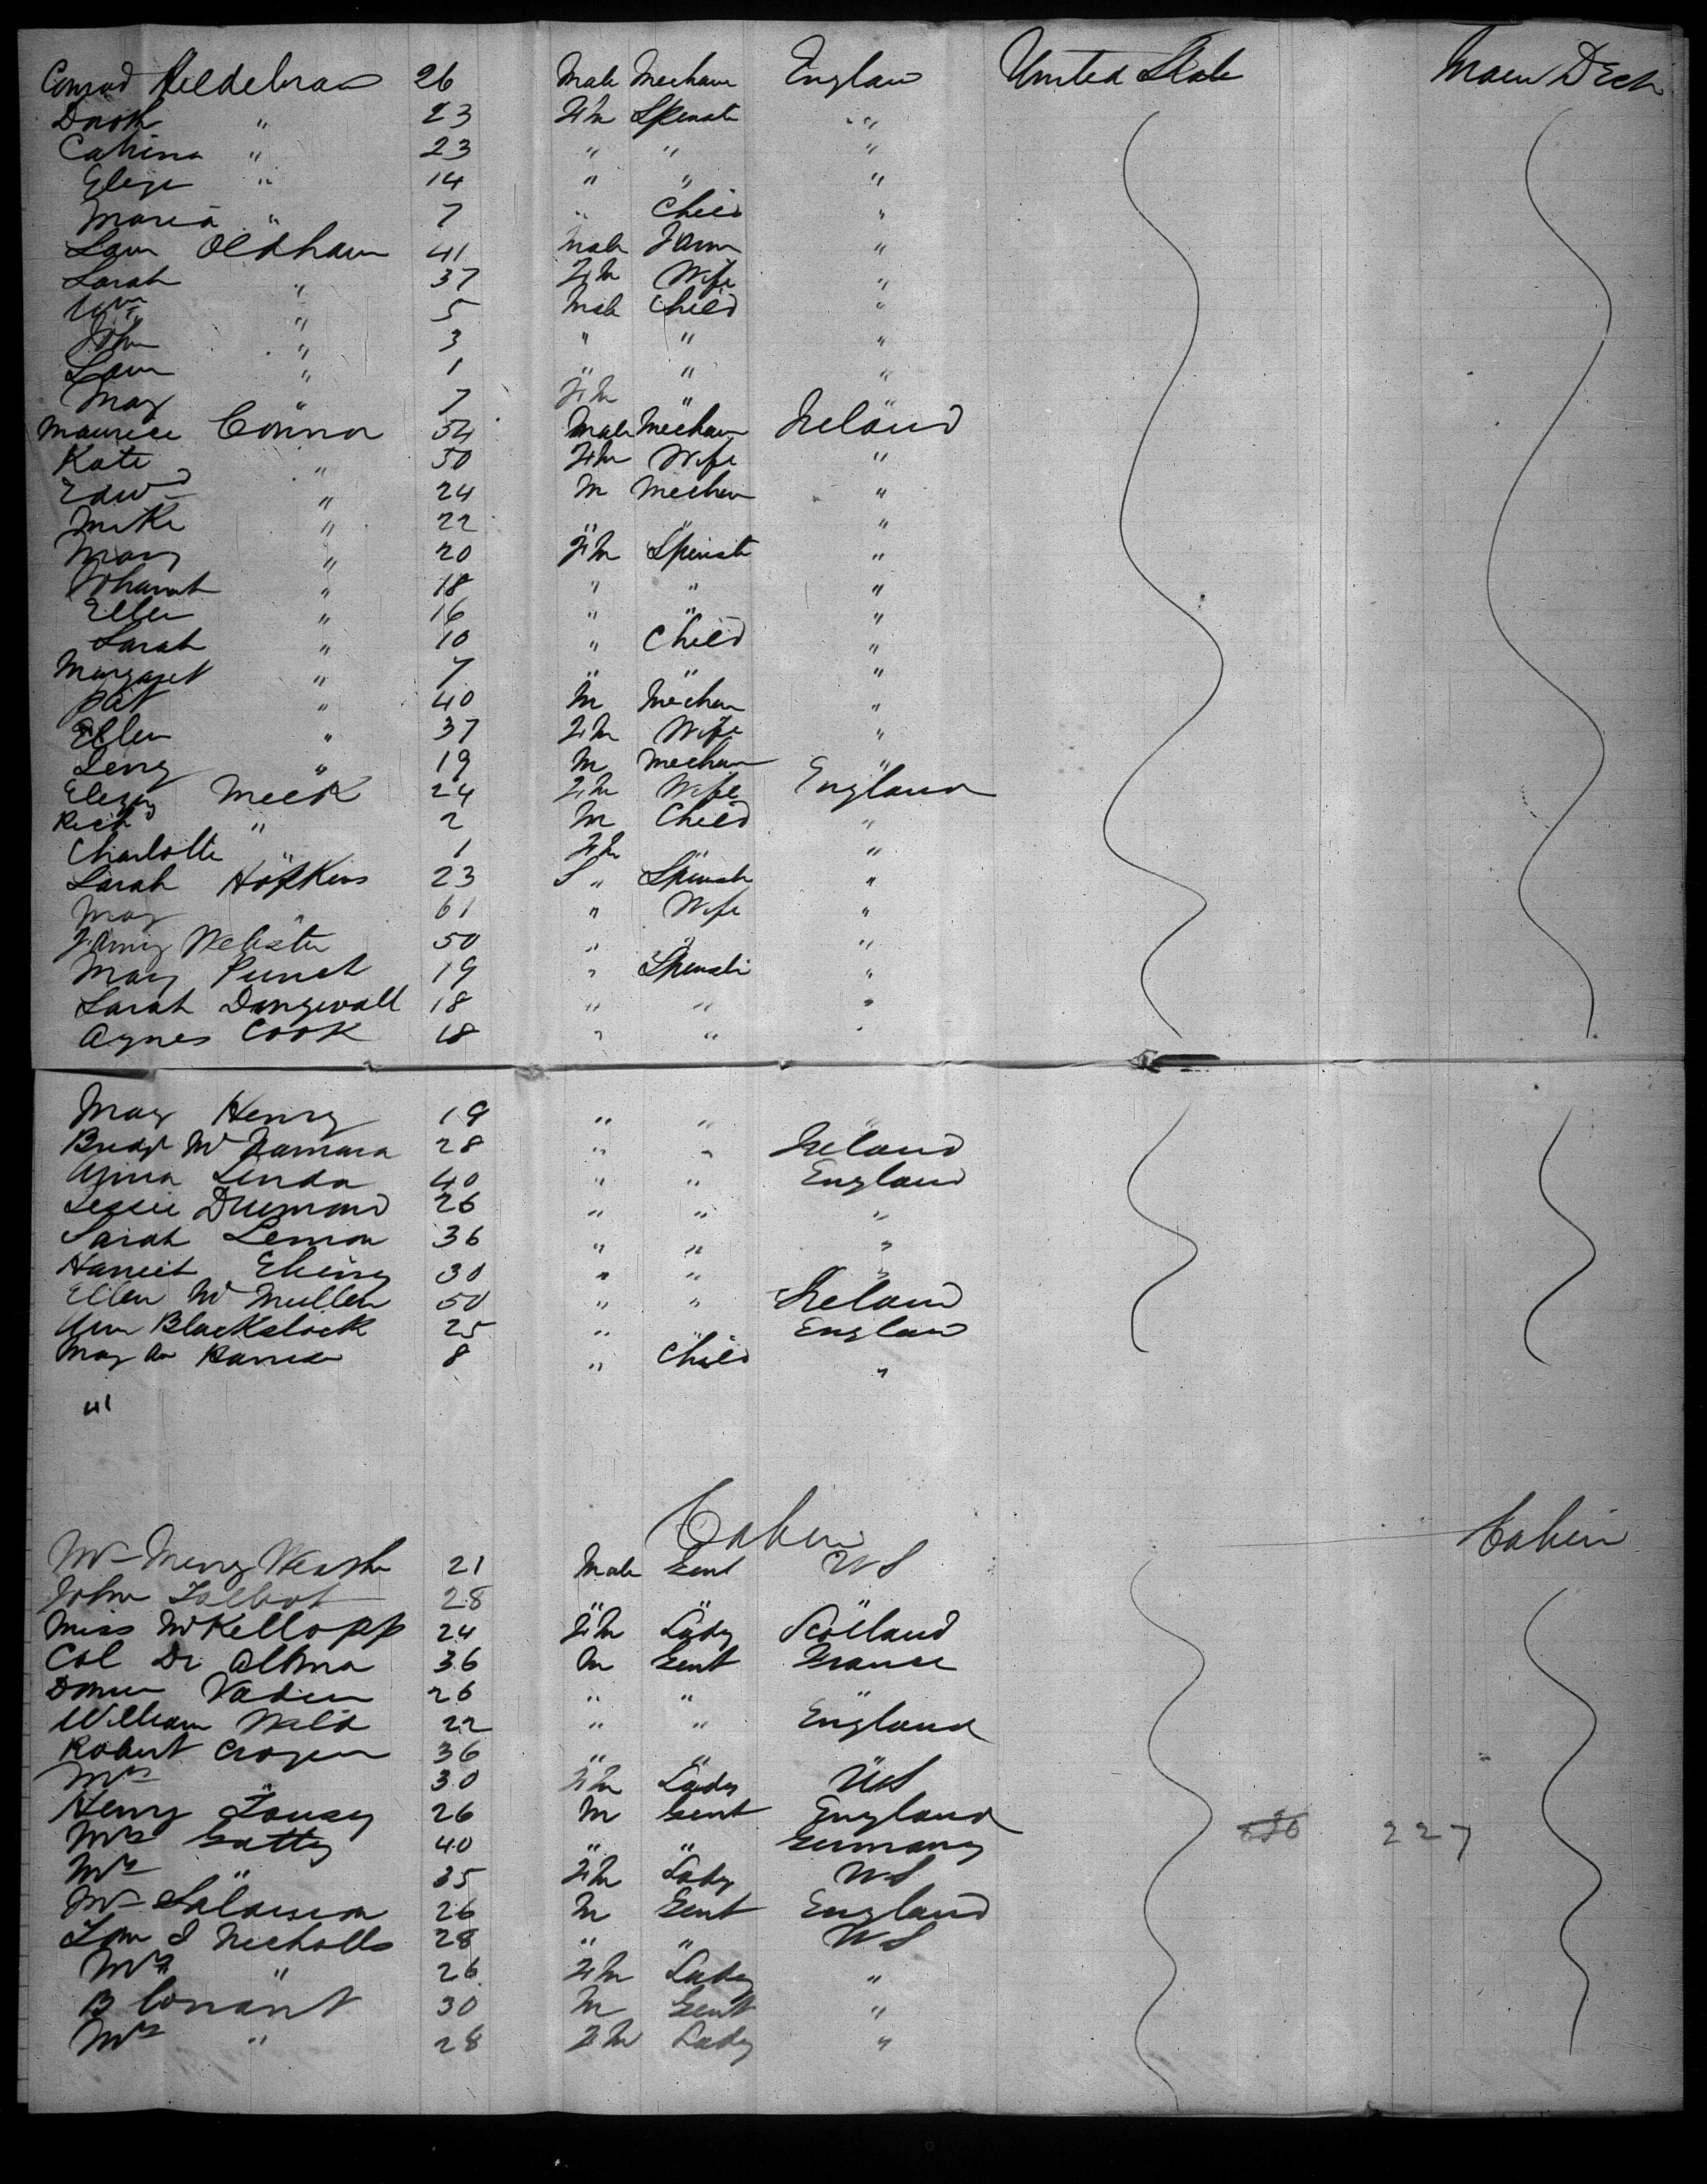 Conrad Hildebran 26 Male Mechan Englan United State Main Deck
" 23 Fm Spinst "
Catrina " 23 " " "
Eliza " 14 " " "
Maria " 7 " Child "
Sam Oldham 41 male Farm "
Sarah " 37 Fm Wife "
Wm " 5 Male Child "
John " 3 " " "
Sam " 1 " " "
Mary " 7 Fm " "
Maurice Connor 54 Male Mechan Ireland
Kate " 50 Fm Wife "
Edwd " 24 M Mechan "
Mike " 22 " " "
Mary " 20 Fm Spinst "
Johanah " 18 " " "
Ellen " 16 " " "
Sarah " 10 " Child "
Margaret " 7 " " "
Pat " 40 M Mechan "
Ellen " 37 Fm Wife "
" 19 M Mechan "
Meek 24 Fm Wife England
Richd " 2 M Child "
Charlotte " 1 Fm " "
Sarah Hopkins 23 S " Spinst "
Mary " 61 " Wife "
Fanny Webster 50 " " "
Mary Punch 19 " Spinst "
Sarah Dangwall 18 " " "
Agnes Cook 18 " " "
Mary Henry 19 " " "
Bridgt McNamara 28 " " Ireland
Linda 40 " " England
Drumond 26 " " "
Sarah Lemon 36 " " "
30 " " "
Ellen McMullen 50 " " Ireland
Ann Blackstock 25 " England
Mary An 8 " Child "
41
Cabin
Mr Merry 21 Male Gent US Cabin
John Talbot 28 " " "
Miss McKellopp 24 Fm Lady Scotland
Col De Altma 36 M Gent France
26 " " "
William Wild 22 " " England
Robert 36 " " "
Mrs " 30 Fm Lady US
Henry 26 M Gent England
Mr Gatty 40 " " Germany
Mrs " 35 Fm Lady US
Mr 26 M Gent England
Nicholls 28 " " US
Mrs " 26 Fm Lady "
B Conant 30 M Gent "
Mrs " 28 Fm Lady "
227